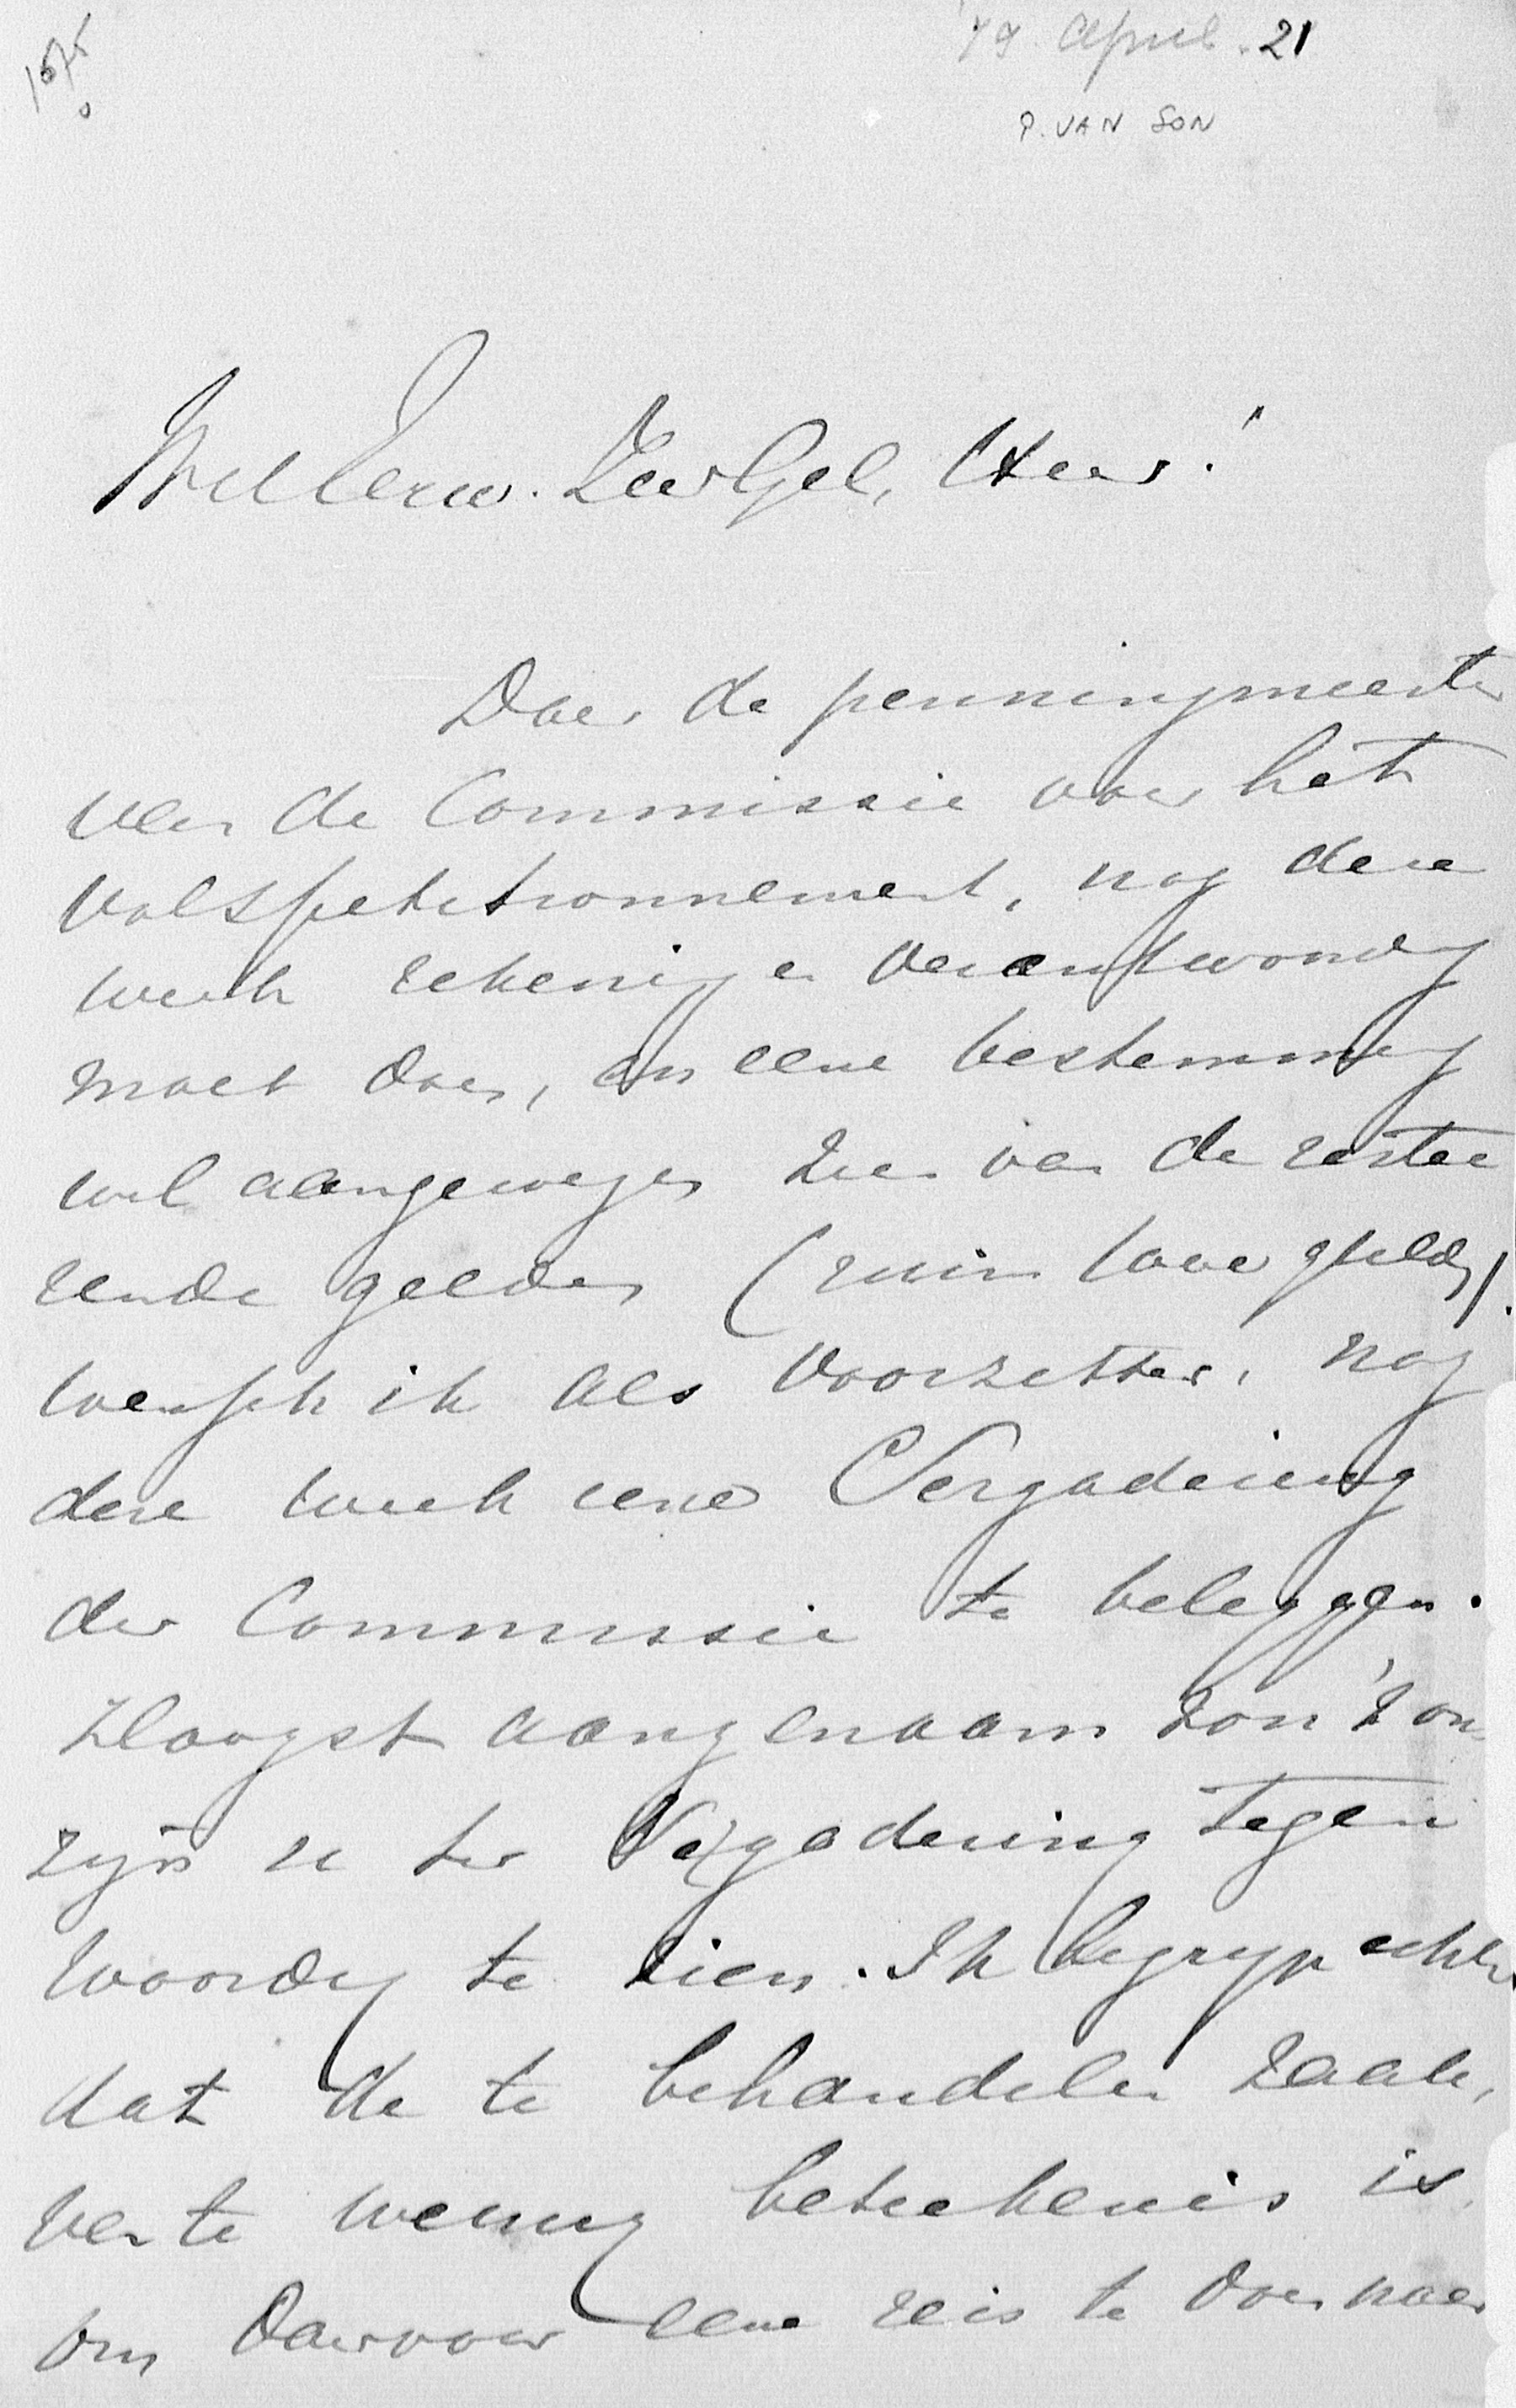 '79 April. 21
P. VAN SON
WelEerw. ZeerGel. Heer!
Daar de penningmeester
van de Commissie voor het
Volkspetitionnement, nog deze
week rekening en verantwoording
moet doen, en eene bestemming
wil aangewezen zien van de restee
rende gelden (ruim
wensch ik als Voorzitter, nog
deze week eene Vergadering
der Commissie te beleggen.
Hoogst aangenaam zou 't ons
zijn u ter Vergadering tegen
woordig te zien. Ik begryp echter
dat de te behandelen zaak,
van te weinig beteekenis is,
om daarvoor eene reis te doen naar